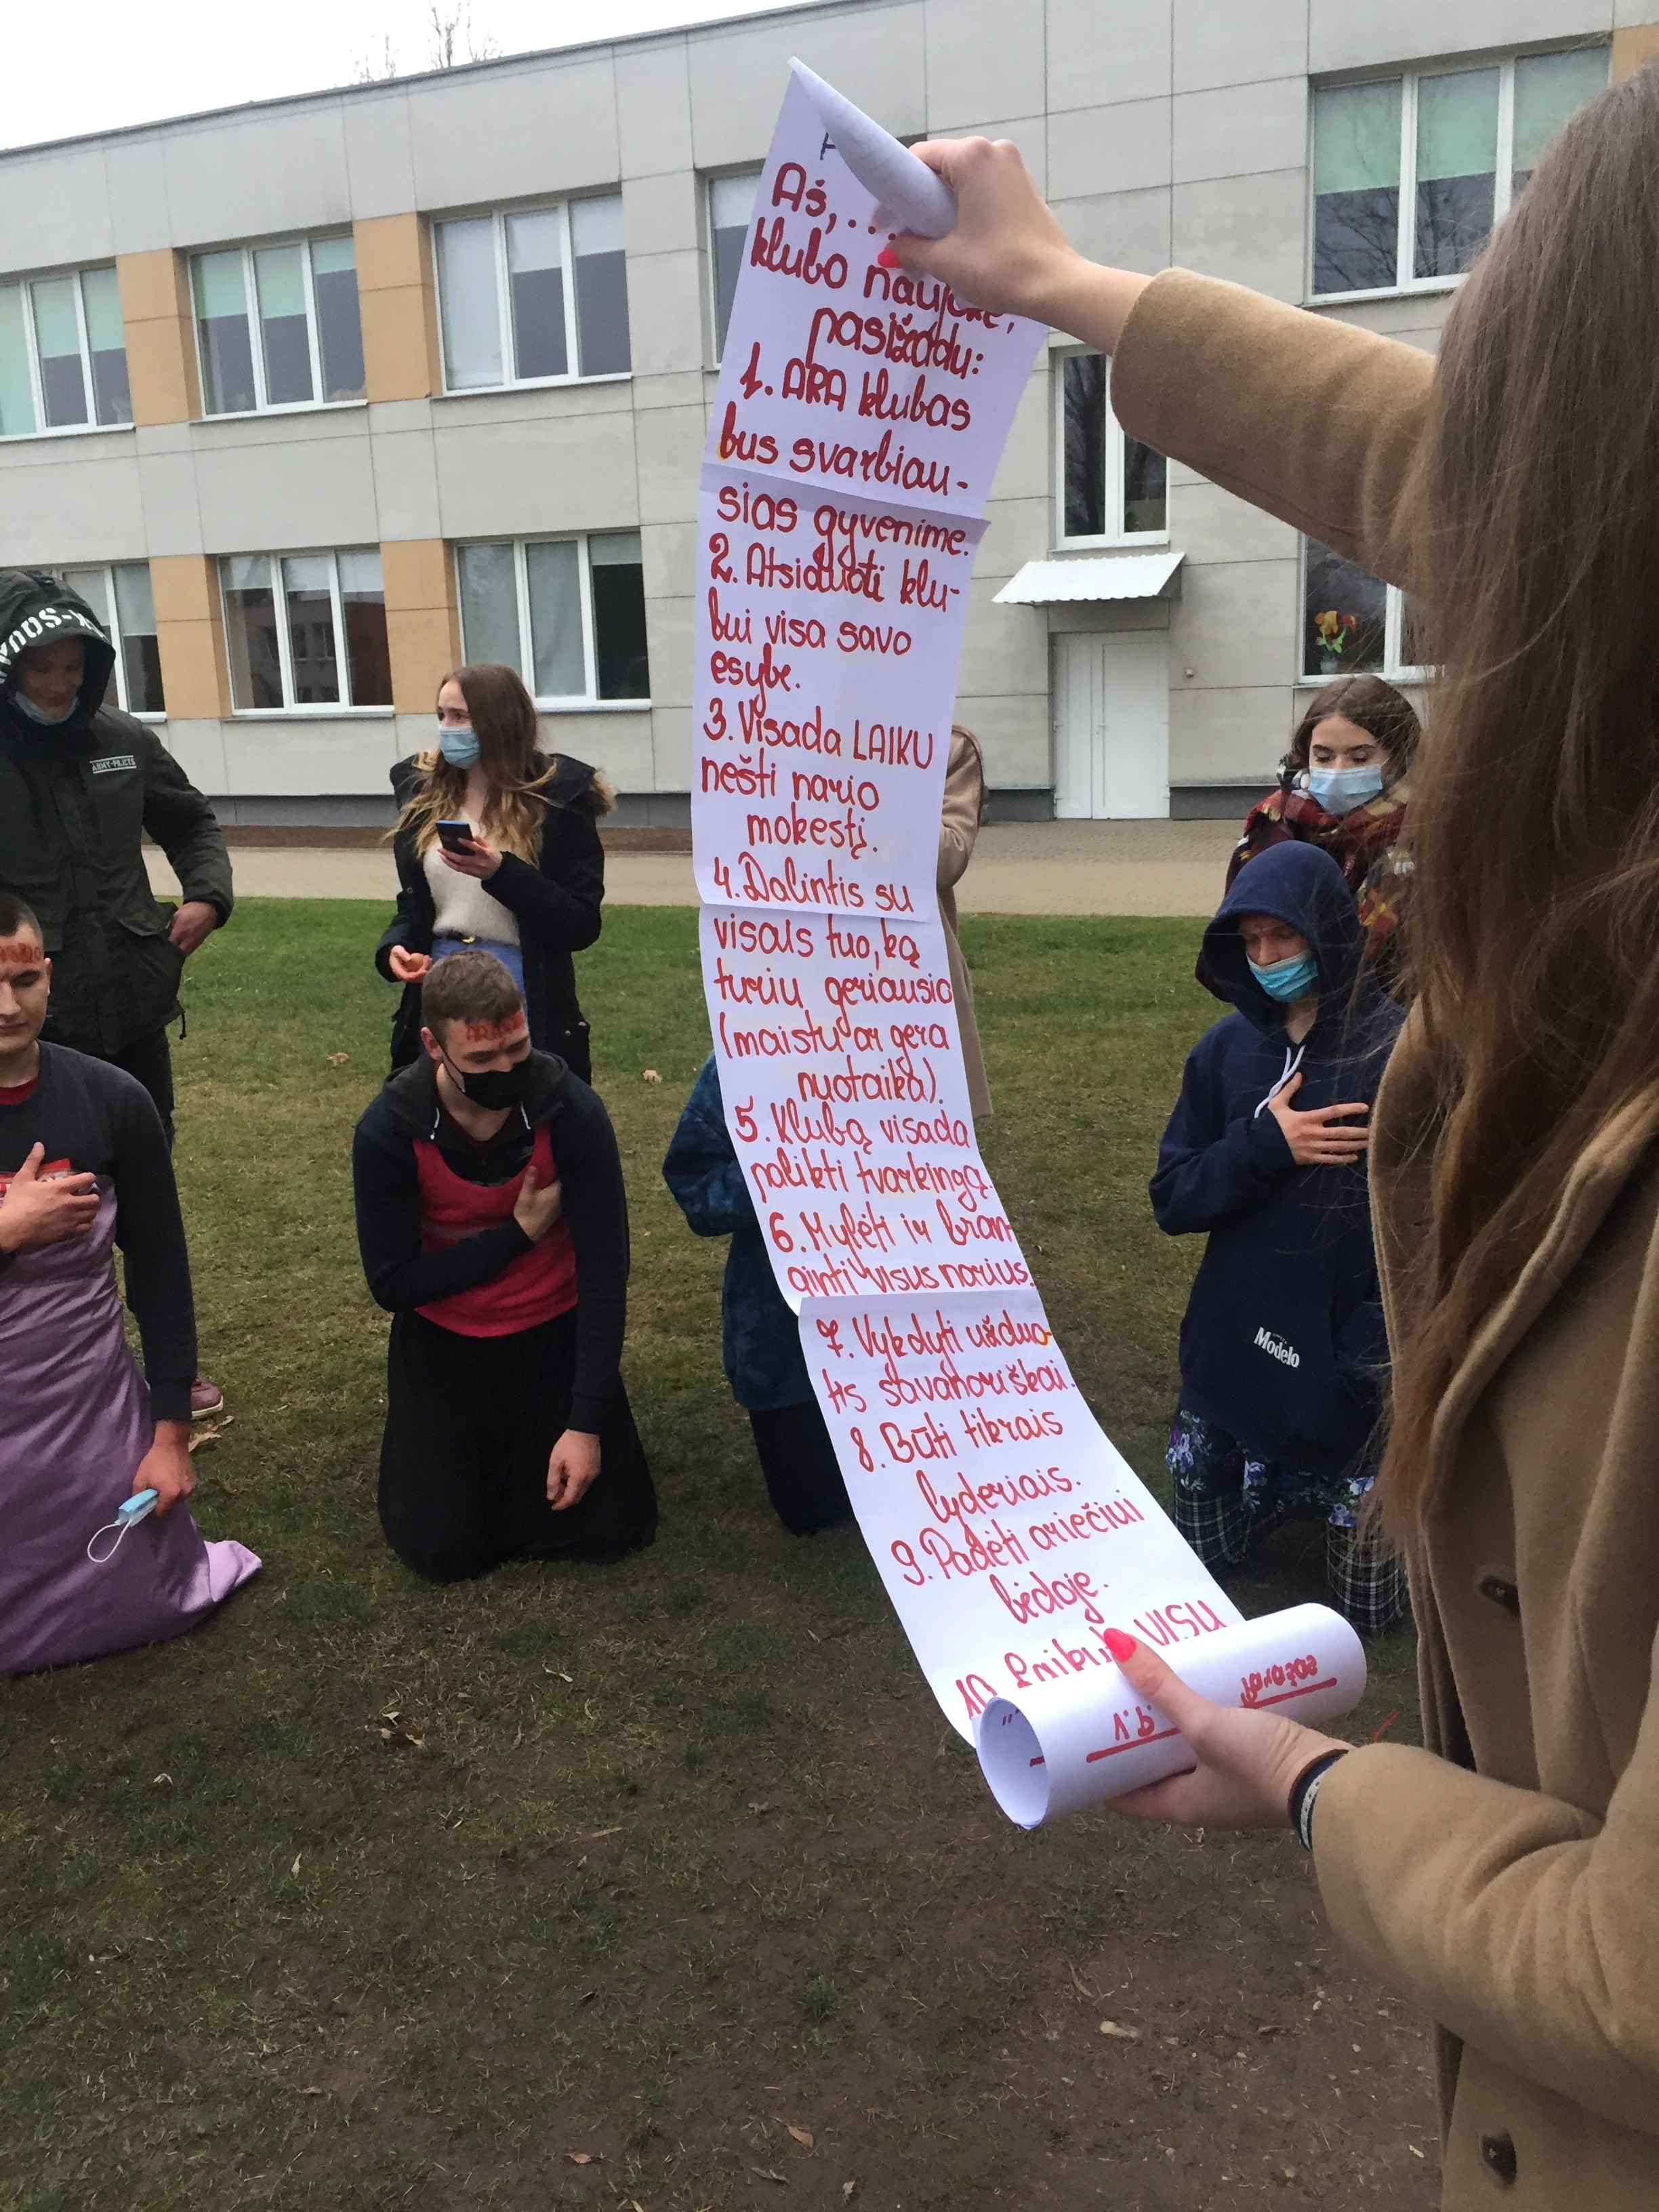 Aš, ....
klubo
pasižadu:
1. ARA klubas
bus svarbiau-
sias gyvenime.
2. Atsiduoti klu-
bui visa savo
esybe.
3. Visada LAIKU
nešti nario
mokestį.
4. Dalintis su
visais tuo, ką
turiu geriausio
(maistu ar gera
nuotaika).
5. Klubą visada
palikti tvarkingą.
6. Mylėti ir bran-
ginti visus narius.
7. Vykdyti užduo-
tis savanoriškai.
8. Būti tikrais
lyderiais.
9. Padėti ariečiui
bėdoje.
10. VISU
Parašas
ARMY-PRJCTS
Modelo